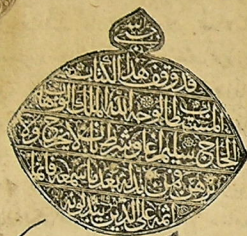 قد وقف هذا الكتاب
لوجه الله الملك
الحاج سليم اغا وشرط ان لا يخرج ولا
يرهن فمن بدله بعد ما سمعه فانما
اثمه على الذين يبدلونه